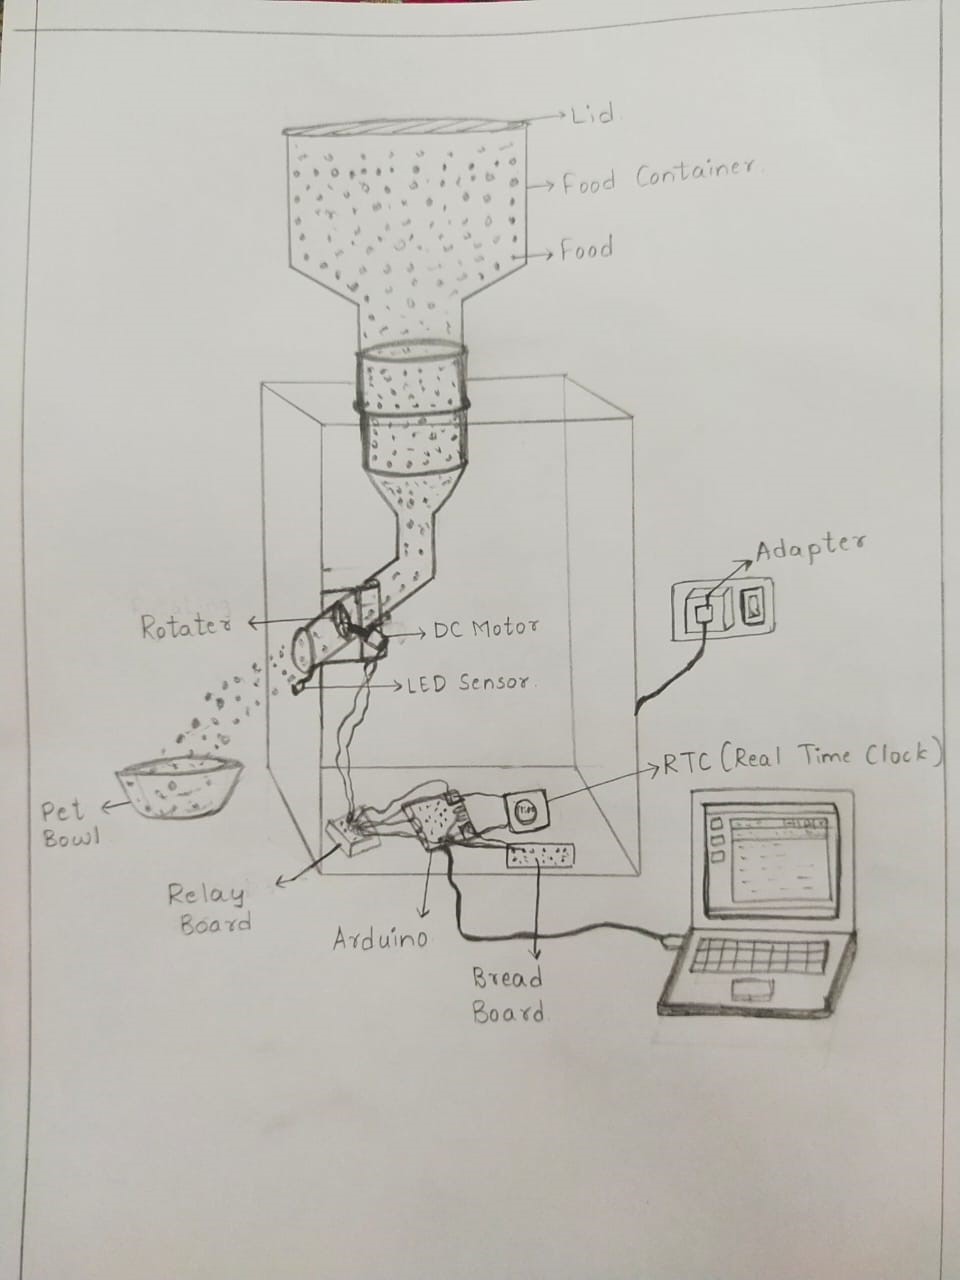 Lid
Food Container
Food
Adapter
Rotater
DC Motor
LED Sensor
RTC (Real Time Clock)
Pet
Bowl
Relay
Board
Arduino
Bread
Board